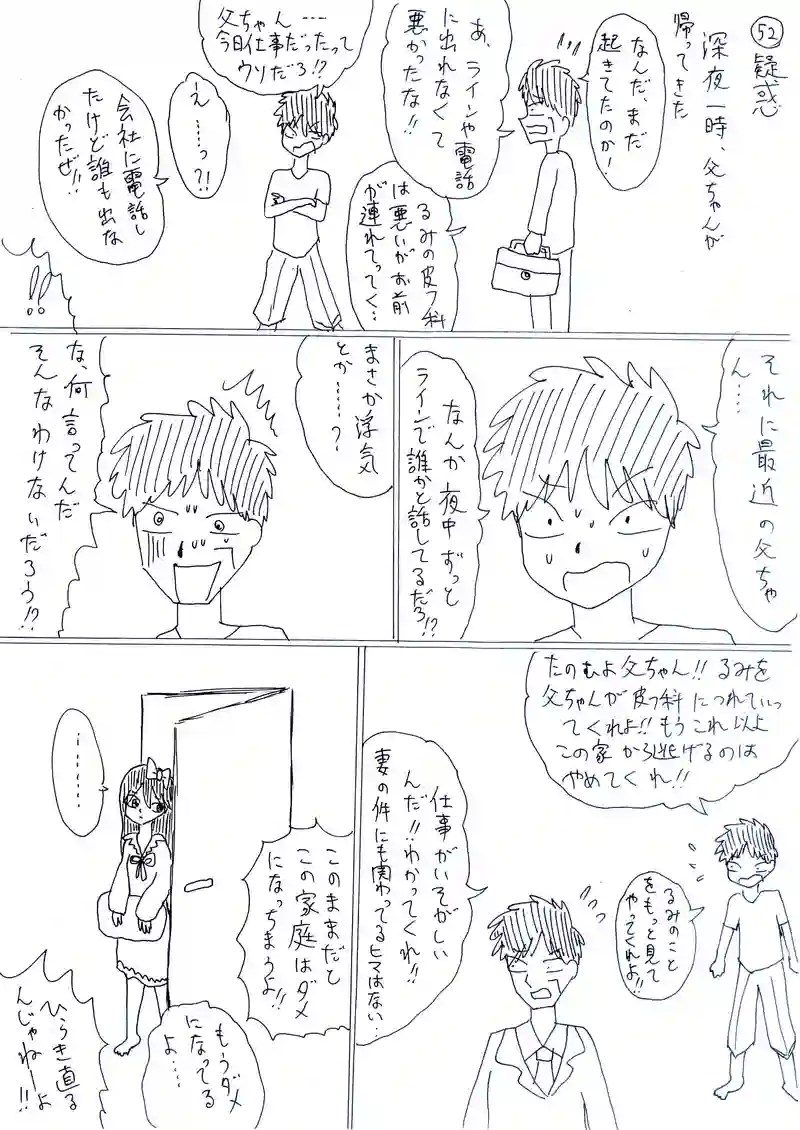 52
疑惑
深夜一時、父ちゃんが
帰ってきた
なんだ、まだ
起きてたのか!
あ、ラインや電話
に出れなくて
悪かったな!!
るみの皮フ科
は悪いがお前
が連れてってく…
父ちゃん……
今日仕事だったって
ウソだろ!?
え……っ?!
会社に電話し
たけど誰も出な
かったぜ!!
!!
それに最近の父ちゃ
ん……
なんか夜中ずっと
ラインで誰かと話してるだろ!?
まさか浮気
とか……?
な、何言ってんだ
そんなわけないだろう!?
たのむよ父ちゃん!!るみを
父ちゃんが皮フ科につれていっ
てくれよ!!もうこれ以上
この家から逃げるのは
やめてくれ!!
るみのこと
をもっと見て
やってくれよ!!
仕事がいそがしい
んだ!!わかってくれ!!
妻の件にも関わってるヒマはない…
このままだと
この家庭はダメ
になっちまうよ!!
もうダメ
になってる
よ……
ひらき直る
んじゃねーよ!!
………